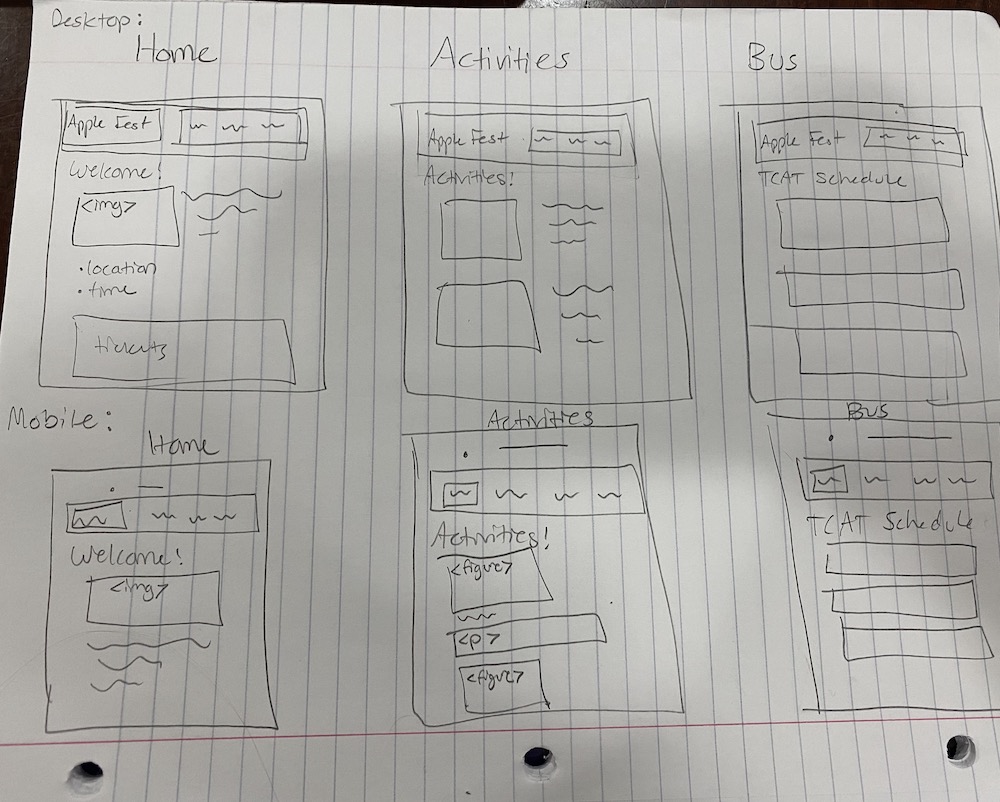 Desktop:
Home
Activities
Bus
Apple Fest
Welcome!
<img>
• location
• time
tickets
Apple Fest
Activities!
Apple Fest
TCAT Schedule
Mobile:
Home
Welcome!
<img>
Activities
Activities!
<figure>
<p>
<figure>
Bus
TCAT Schedule